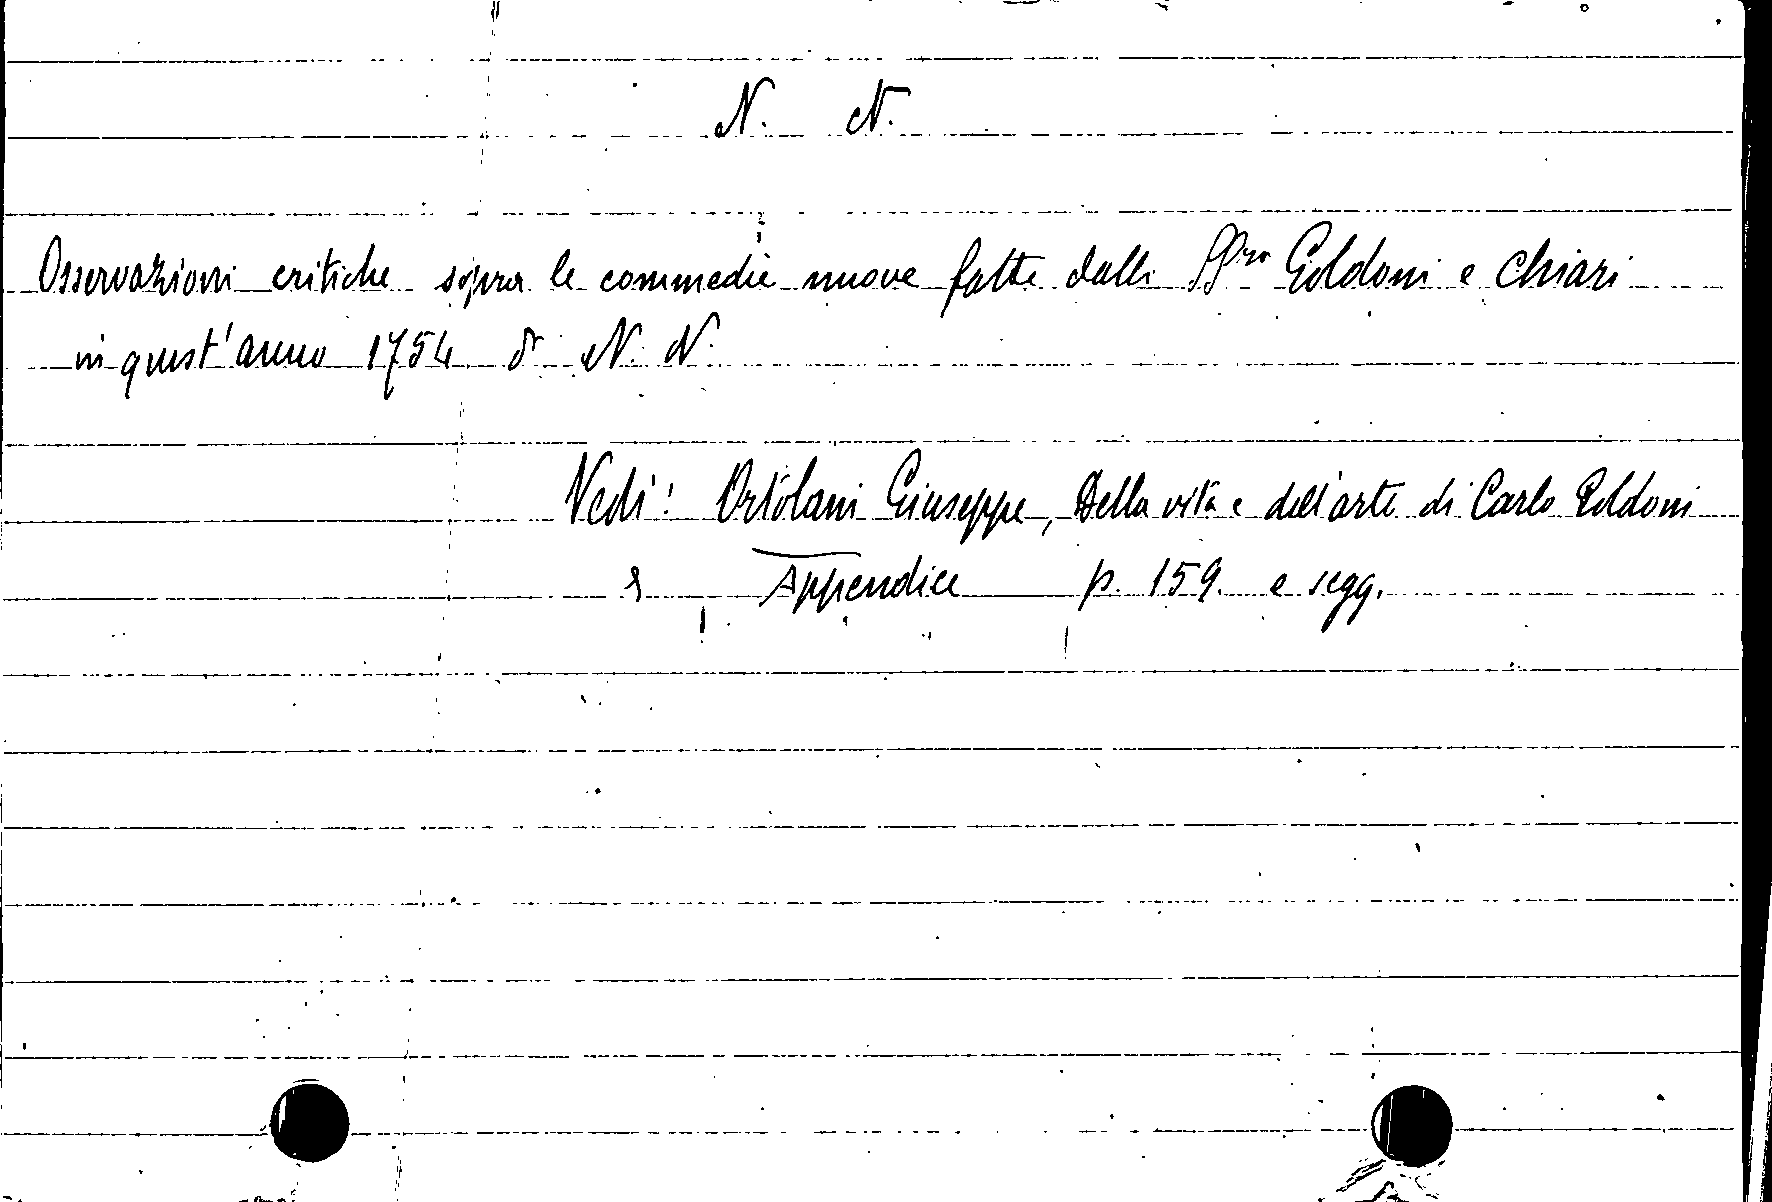 N. N.
Osservazioni critiche sopra le commedie nuove fatte dalli Goldoni e Chiari
in quest'anno 1754 di N. N.
Vedi: Ortolani Giuseppe, Della vita e dell'arte di Carlo Goldoni
Appendice p. 159. e segg.